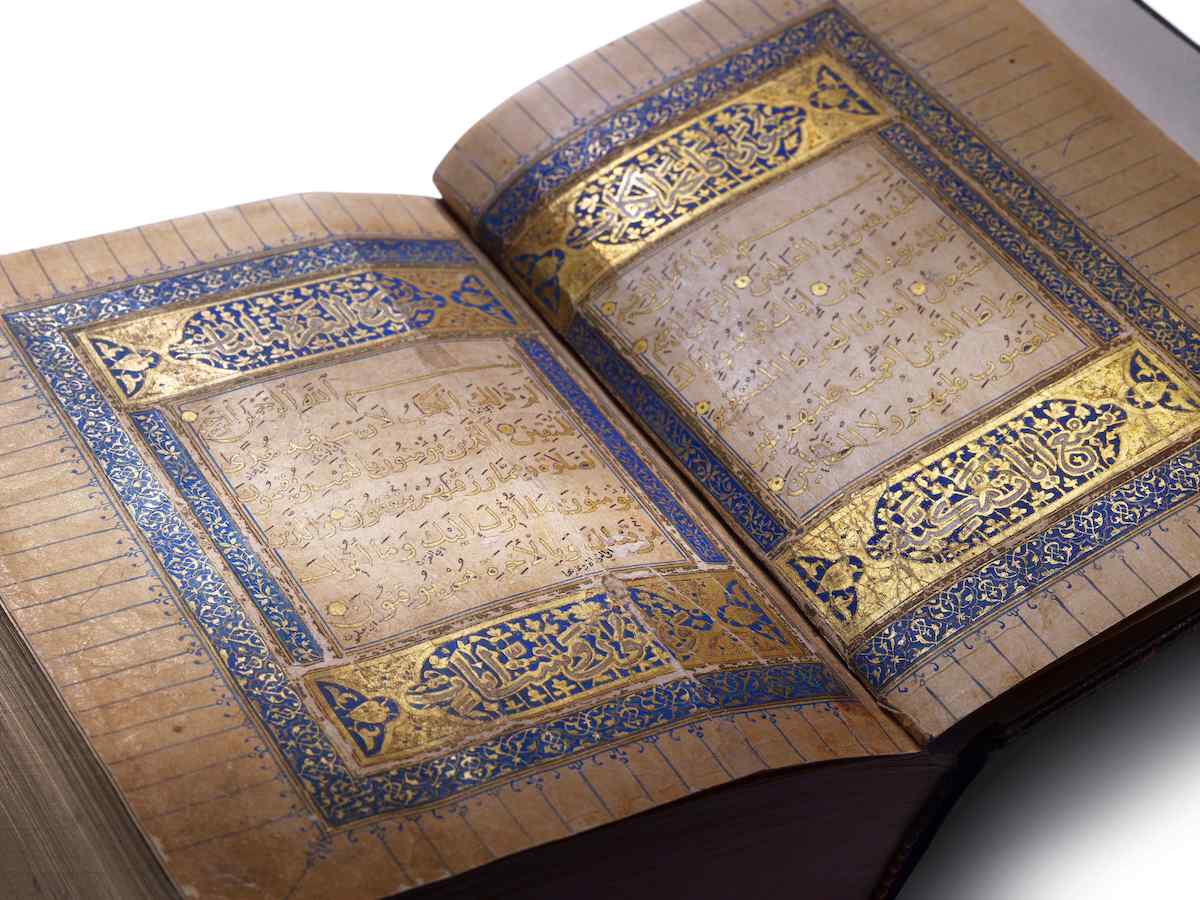 سورة فاتحة الكتاب
بسم الله الرحمن الرحيم
الحمد لله رب العالمين الرحمن الرحيم
ملك يوم الدين اياك نعبد واياك
نستعين اهدنا الصراط المستقيم
صراط الذين انعمت عليهم غير
المغضوب عليهم ولا الضالين
سبع ايات مكية
بسم الله الرحمن الرحيم
الم ذلك الكتاب لا ريب فيه هدى
للمتقين الذين يؤمنون بالغيب ويقيمون
الصلوة ومما رزقناهم ينفقون والذين
يؤمنون بما انزل اليك وما انزل من
قبلك وبالاخرة هم يوقنون